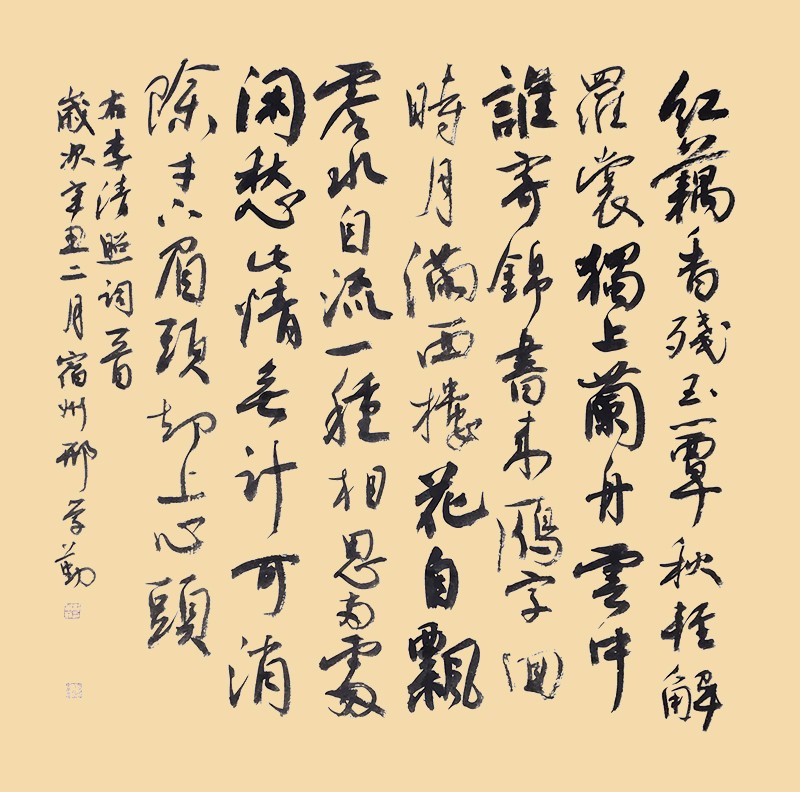 紅藕香殘玉簟秋輕解
羅裳獨上蘭舟雲中
誰寄錦書來鴈字回
時月滿西樓花自飄
零水自流一種相思兩處
閑愁此情無計可消
除才下眉頭却上心頭
右李清照詞一首
歲次辛丑二月宿州邢學勤